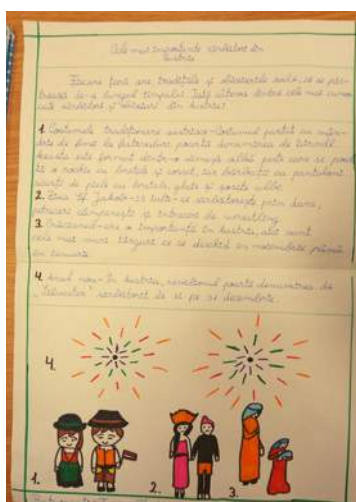 Cele mai importante sărbători din
Austria
Fiecare țară are tradițiile și obiceiurile sale, ce se păs-
trează de-a lungul timpului. Iată câteva dintre cele mai cunos-
cute sărbători și obiceiuri din Austria:
1. Costumele tradiționale austriece-Costumul purtat cu mân-
drie de femei la sărbători, poartă denumirea de
Acesta este format dintr-o cămașă albă peste care se poartă
o rochie cu bretele și corset, iar bărbații au pantaloni
scurți de piele cu bretele, ghete și șosete albe.
2. Ziua Sf. Jakob-25 iulie-se sărbătorește prin dans,
petreceri câmpenești și întreceri de wrestling.
3. Crăciunul-are o importanță în Austria, aici sunt
cele mai mari târguri ce se deschid în noiembrie până
în ianuarie.
4. Anul nou-În Austria, revelionul poartă denumirea de
„Silvester" sărbătorit de ei pe 31 decembrie.
4.
1.
2.
3.